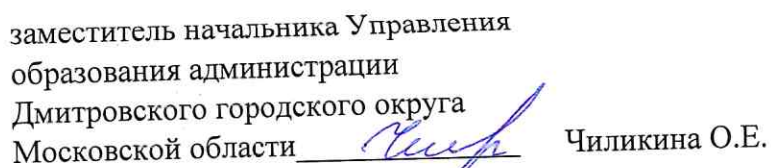 заместитель начальника Управления
образования администрации
Дмитровского городского округа
Московской области Чиликина О.Е.